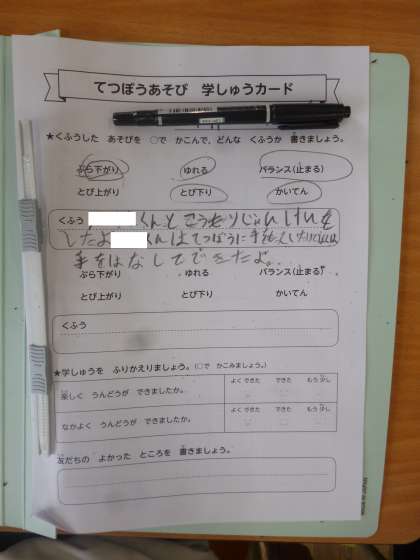 てつぼうあそび 学しゅうカード
★くふうした あそびを ○で かこんで、どんな くふうか 書きましょう。
ぶら下がり ゆれる バランス(止まる)
とび上がり とび下り かいてん
くふう くんとこうもりじゃんけんを
したよ くんはてつぼうに手を
手をはなしてできたよ。
ぶら下がり ゆれる バランス(止まる)
とび上がり とび下り かいてん
くふう
★学しゅうを ふりかえりましょう。(○で かこみましょう。)
楽しく うんどうが できましたか。 よくできた できた もう少し
なかよく うんどうが できましたか。 よくできた できた もう少し
友だちの よかった ところを 書きましょう。
MADE IN JAPAN